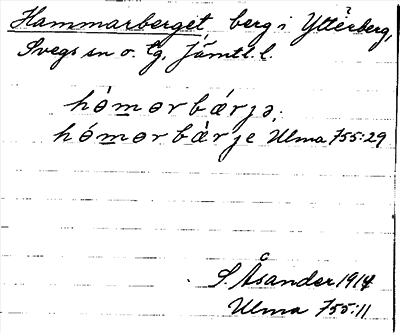 Hammarberget, berg i Ytterberg,
Svegs sn o. tg, Jämtl. l.
hòmərbǽrjə.
hómərbæ̀rje Ulma 755:29
S. Åsander 1914
Ulma 755:11